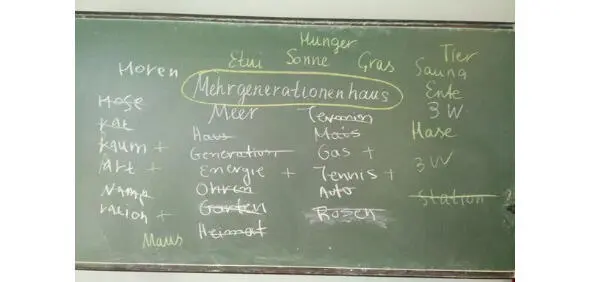 Hunger
Etui Sonne Gras Tier
Horen Sauna
Mehrgenerationenhaus Ente
Hose Meer 3 W.
Rat Haus Mais Hase
Raum + Generation Gas +
Art + Energie + Tennis + 3 W
Name Ohren Auto Station
ration + Garten Rosen
Heimat
Maus